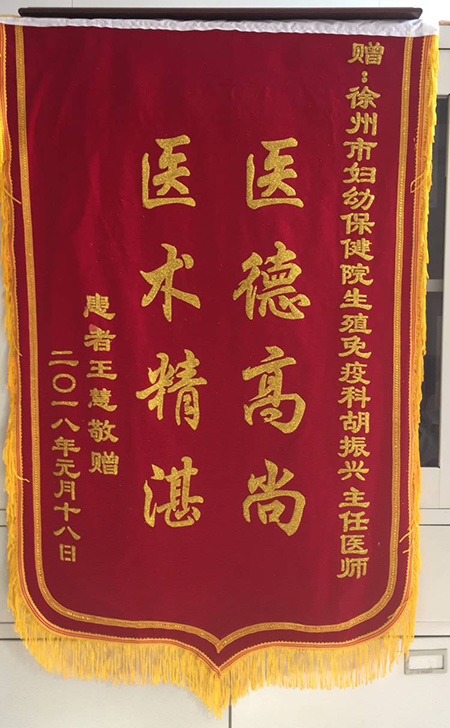 赠：徐州市妇幼保健院生殖免疫科胡振兴主任医师
医德高尚
医术精湛
患者王慧敬赠
二〇一八年元月十八日